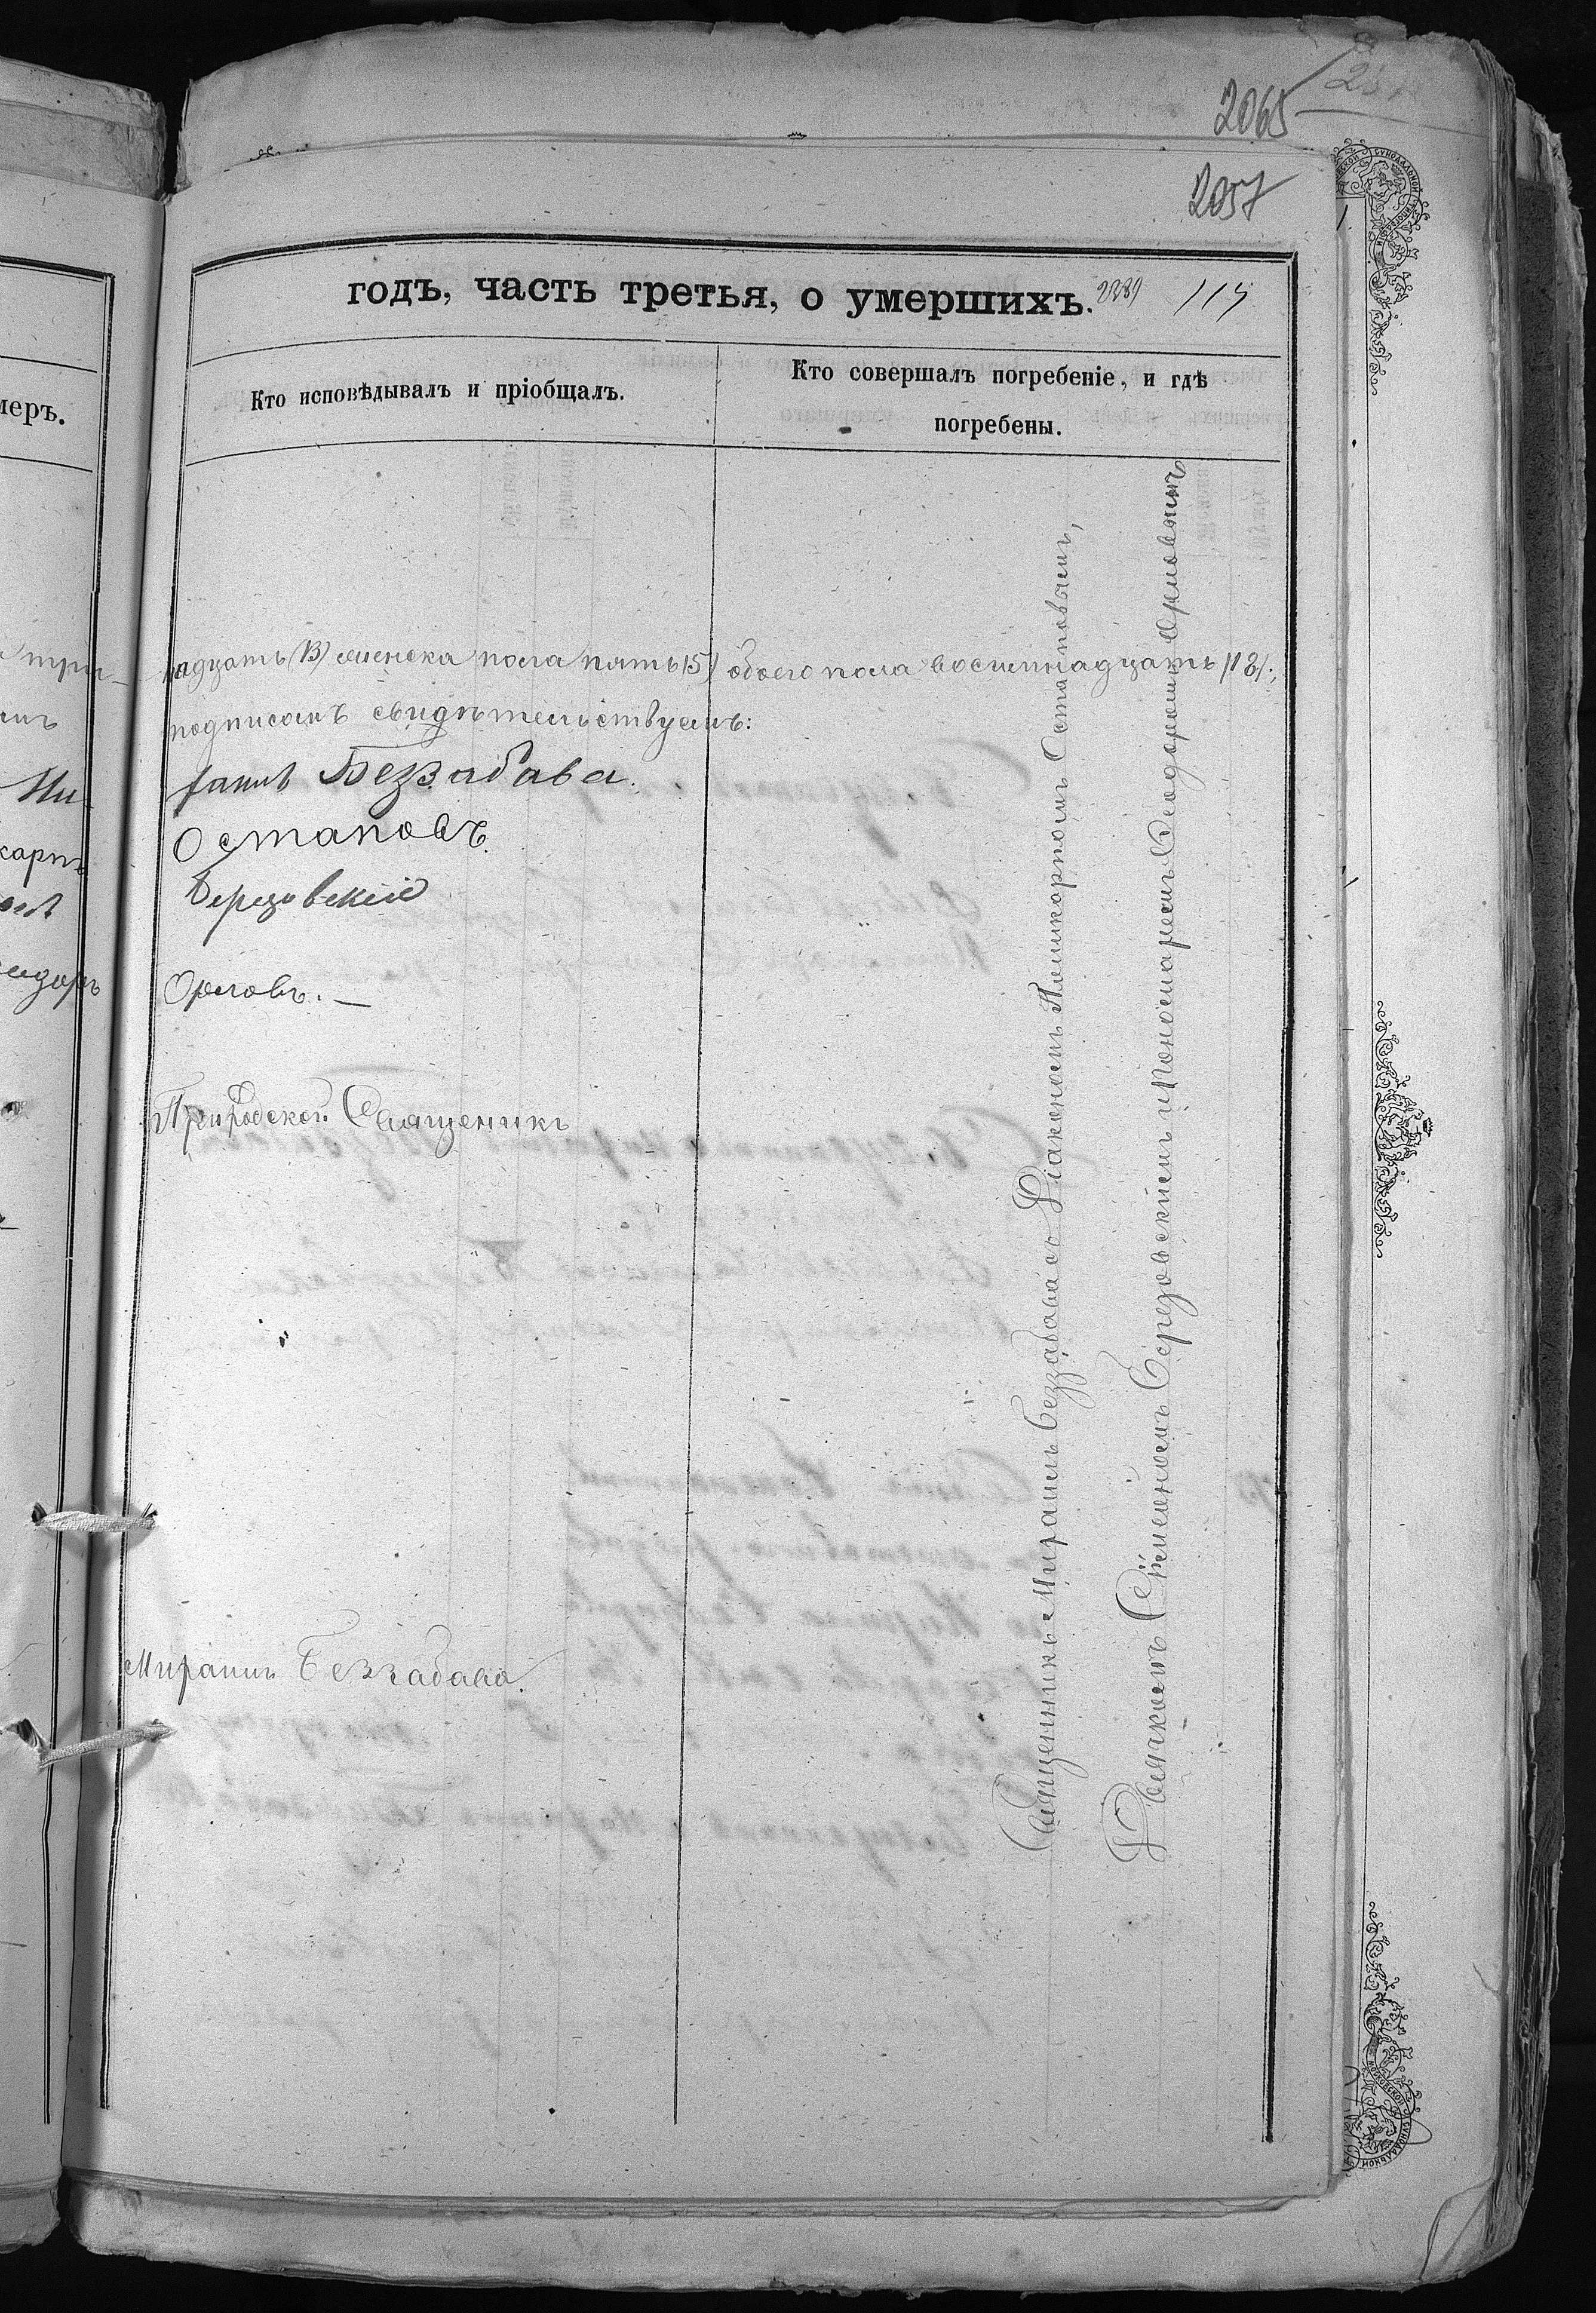 2065
2057
годъ, часть третья, о умершихъ. 2389 115
Кто исповѣдывалъ и пріобщалъ.
Кто совершалъ погребеніе, и гдѣ
погребены.
меръ.
надцать (13) женска пола пять (5) обоего пола восемнадцать (18).,
подписомъ свидѣтельствуемъ:
Беззабава.
Остаповъ.
Березовскій
Орловъ. —
Приходской Священникъ
Миронъ Беззабава.
Священникъ Миронъ Беззабава съ Діакономъ Поликарпомъ Остаповымъ,
Дьячкомъ Сѵмеономъ Березовскимъ и Пономаремъ Ѳеодоромъ Орловымъ